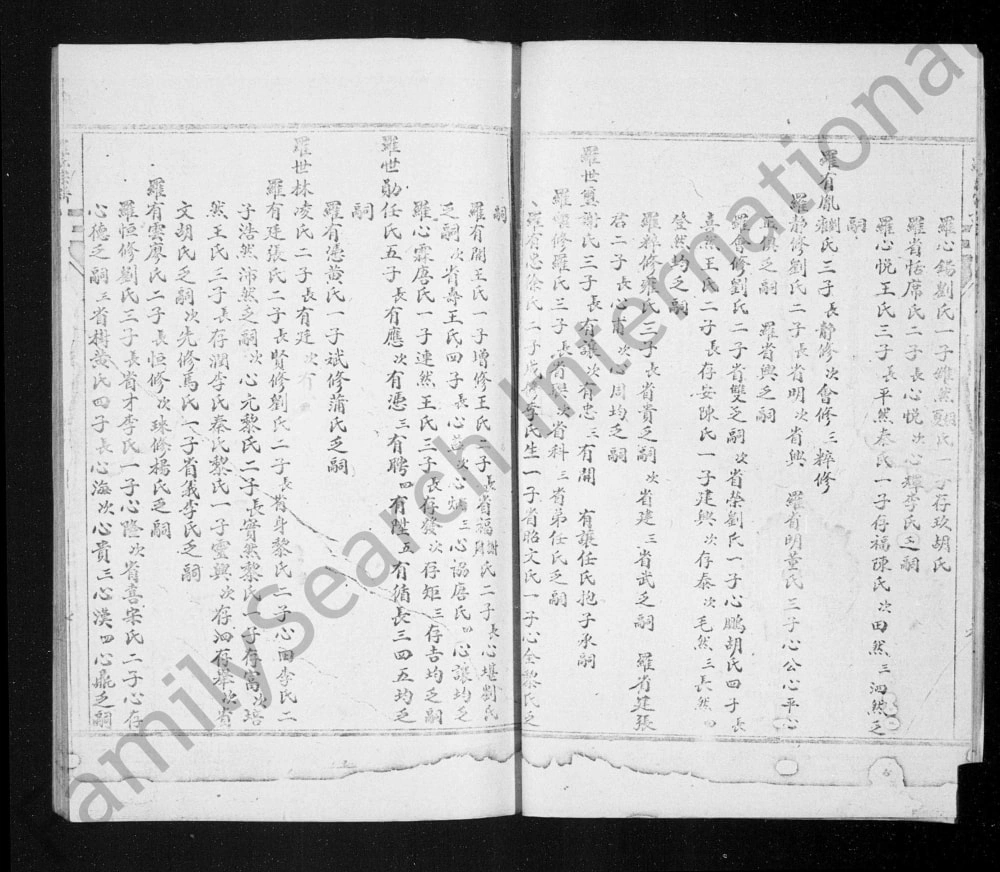 羅心錫劉氏一子維然 氏一子存玖胡氏
羅省恬席氏二子長心悦次心輝李氏乏嗣
羅心悦王氏三子長平然秦氏一子存福陳氏次田然三泗然乏
嗣
羅有胤 氏三子長静修次會修三粹修
羅静修劉氏二子長省明次省興 羅省明董氏三子心公心平心
正俱乏嗣 羅省興乏嗣
羅會修劉氏二子省雙乏嗣次省榮劉氏一子心鵬胡氏四子長
喜然王氏二子長存安陳氏一子建興次存泰次毛然三長然四
登然均乏嗣
羅粹修雍氏三子長省貴乏嗣次省建三省武乏嗣 羅省建張
君二子長心甫次心周均乏嗣
羅世奠謝氏三子長有讓次有忠三有開 有讓任氏抱子承嗣
羅 修羅氏三子長省 次省科三省弟任氏乏嗣
羅有忠徐氏二子 修李氏生一子省昭文氏一子心全黎氏乏
嗣
羅有開王氏一子增修王氏二子長省福謝氏二子長心堪劉氏
乏嗣次省壽王氏四子長心益次心 三心協唐氏四心讓均乏
羅心霖唐氏一子連然王氏三子長存發次存矩三存吉均乏嗣
羅世勛任氏五子長有應次有憑三有聘四有陞五有循長三四五均乏
嗣
羅有憑黄氏一子斌修蒲氏乏嗣
羅世林凌氏二子長有廷次有
羅有廷張氏二子長賢修劉氏二子長省身黎氏二子心田李氏二
子浩然沛然乏嗣次心元黎氏二子長實然黎氏一子存富次培
然王氏三子長存潤李氏秦氏黎氏一子靈興次存洄存 次省
文胡氏乏嗣次先修馬氏一子省儀李氏乏嗣
羅有雲廖氏二子長恒修次珠修楊氏乏嗣
羅恒修劉氏三子長省才李氏一子心隆次省喜宋氏二子心存
心德乏嗣三省樹黄氏四子長心海次心貴三心漢四心鼎乏嗣
FamilySearch International